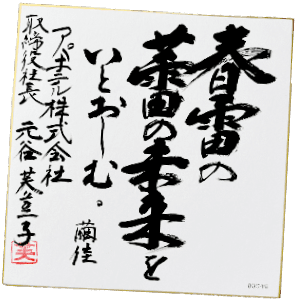 春雷の
蕾の未来を
いとおしむ。
繭佳
アパホテル株式会社
取締役社長 元谷芙美子